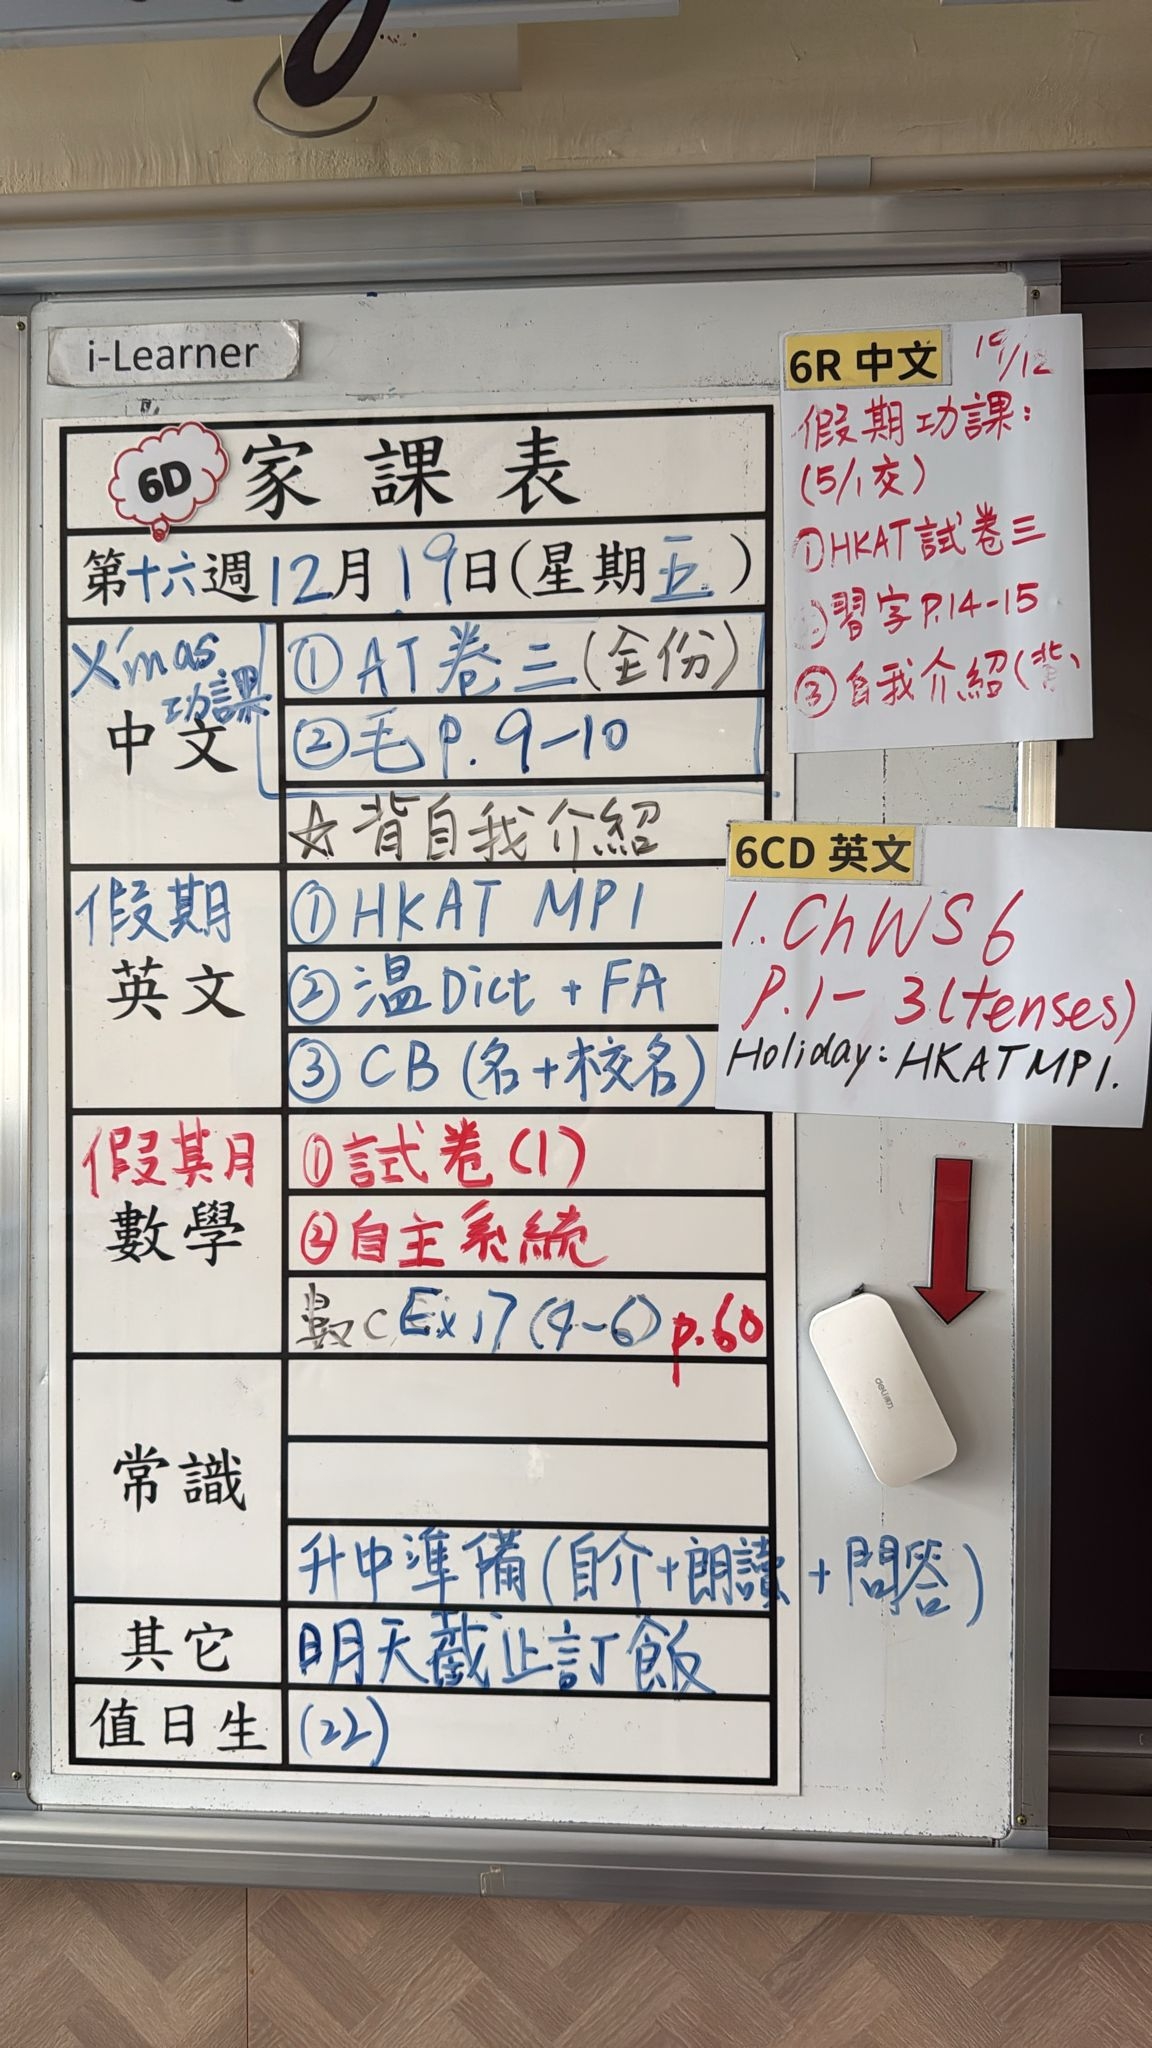 i-Learner
6D 家課表
第十六週12月19日(星期五)
X'mas 功課
中文
①AT卷三(全份)
②毛 P.9-10
☆背自我介紹
假期
英文
①HKAT MP1
②温Dict + FA
③CB (名+校名)
假期
數學
①試卷(1)
②自主系統
C Ex17 (4-6) p.60
常識
升中準備(自介+朗讀+問答)
其它
明天截止訂飯
值日生
(22)
6R 中文
19/12
假期功課:
(5/1交)
①HKAT試卷三
習字P.14-15
③自我介紹(背
6CD 英文
1. Ch WS 6
P.1-3 (tenses)
Holiday: HKAT MP1.
deli得力